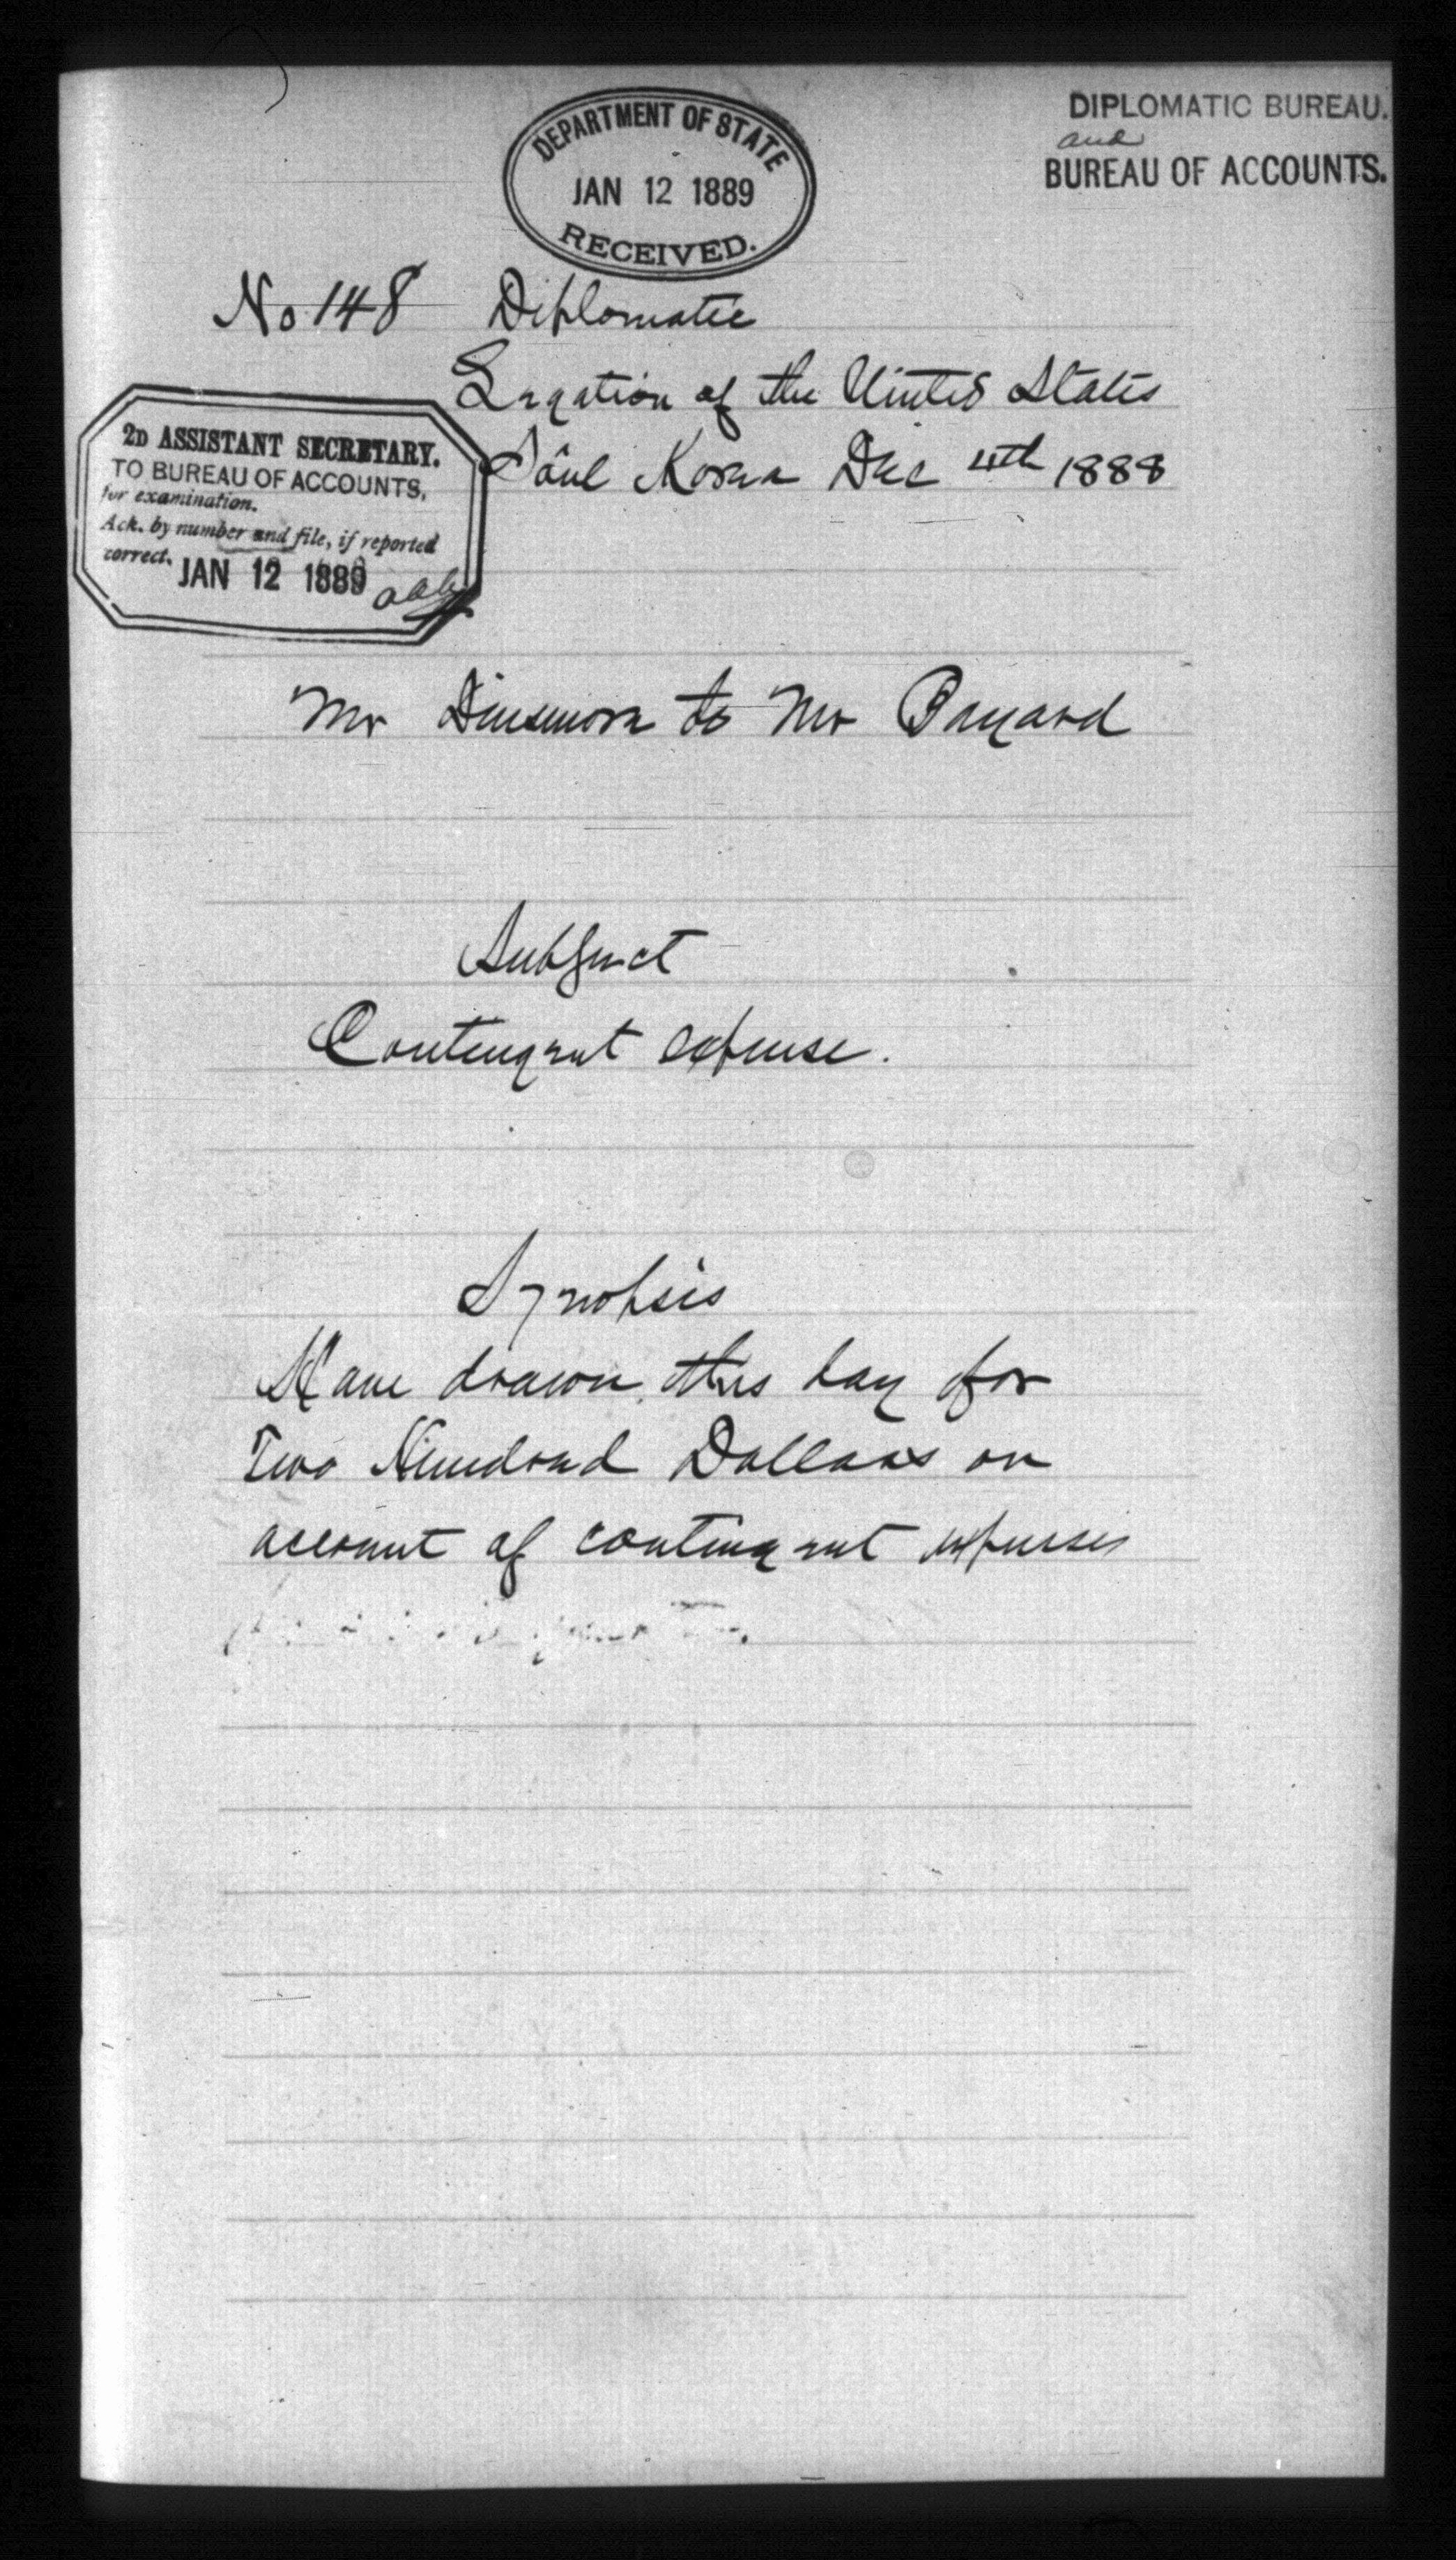 DEPARTMENT OF STATE
JAN 12 1889
RECEIVED.
DIPLOMATIC BUREAU.
and
BUREAU OF ACCOUNTS.
No 148 Diplomatic
Legation of the United States
Sôul Korea Dec 4th 1888
2D ASSISTANT SECRETARY.
TO BUREAU OF ACCOUNTS,
for examination.
Ack. by number and file, if reported
correct.
JAN 12 1889
Mr Dinsmore to Mr Bayard
Subject
Contingent expense.
Synopsis
Have drawn this day for
Two Hundred Dollars on
account of contingent expenses